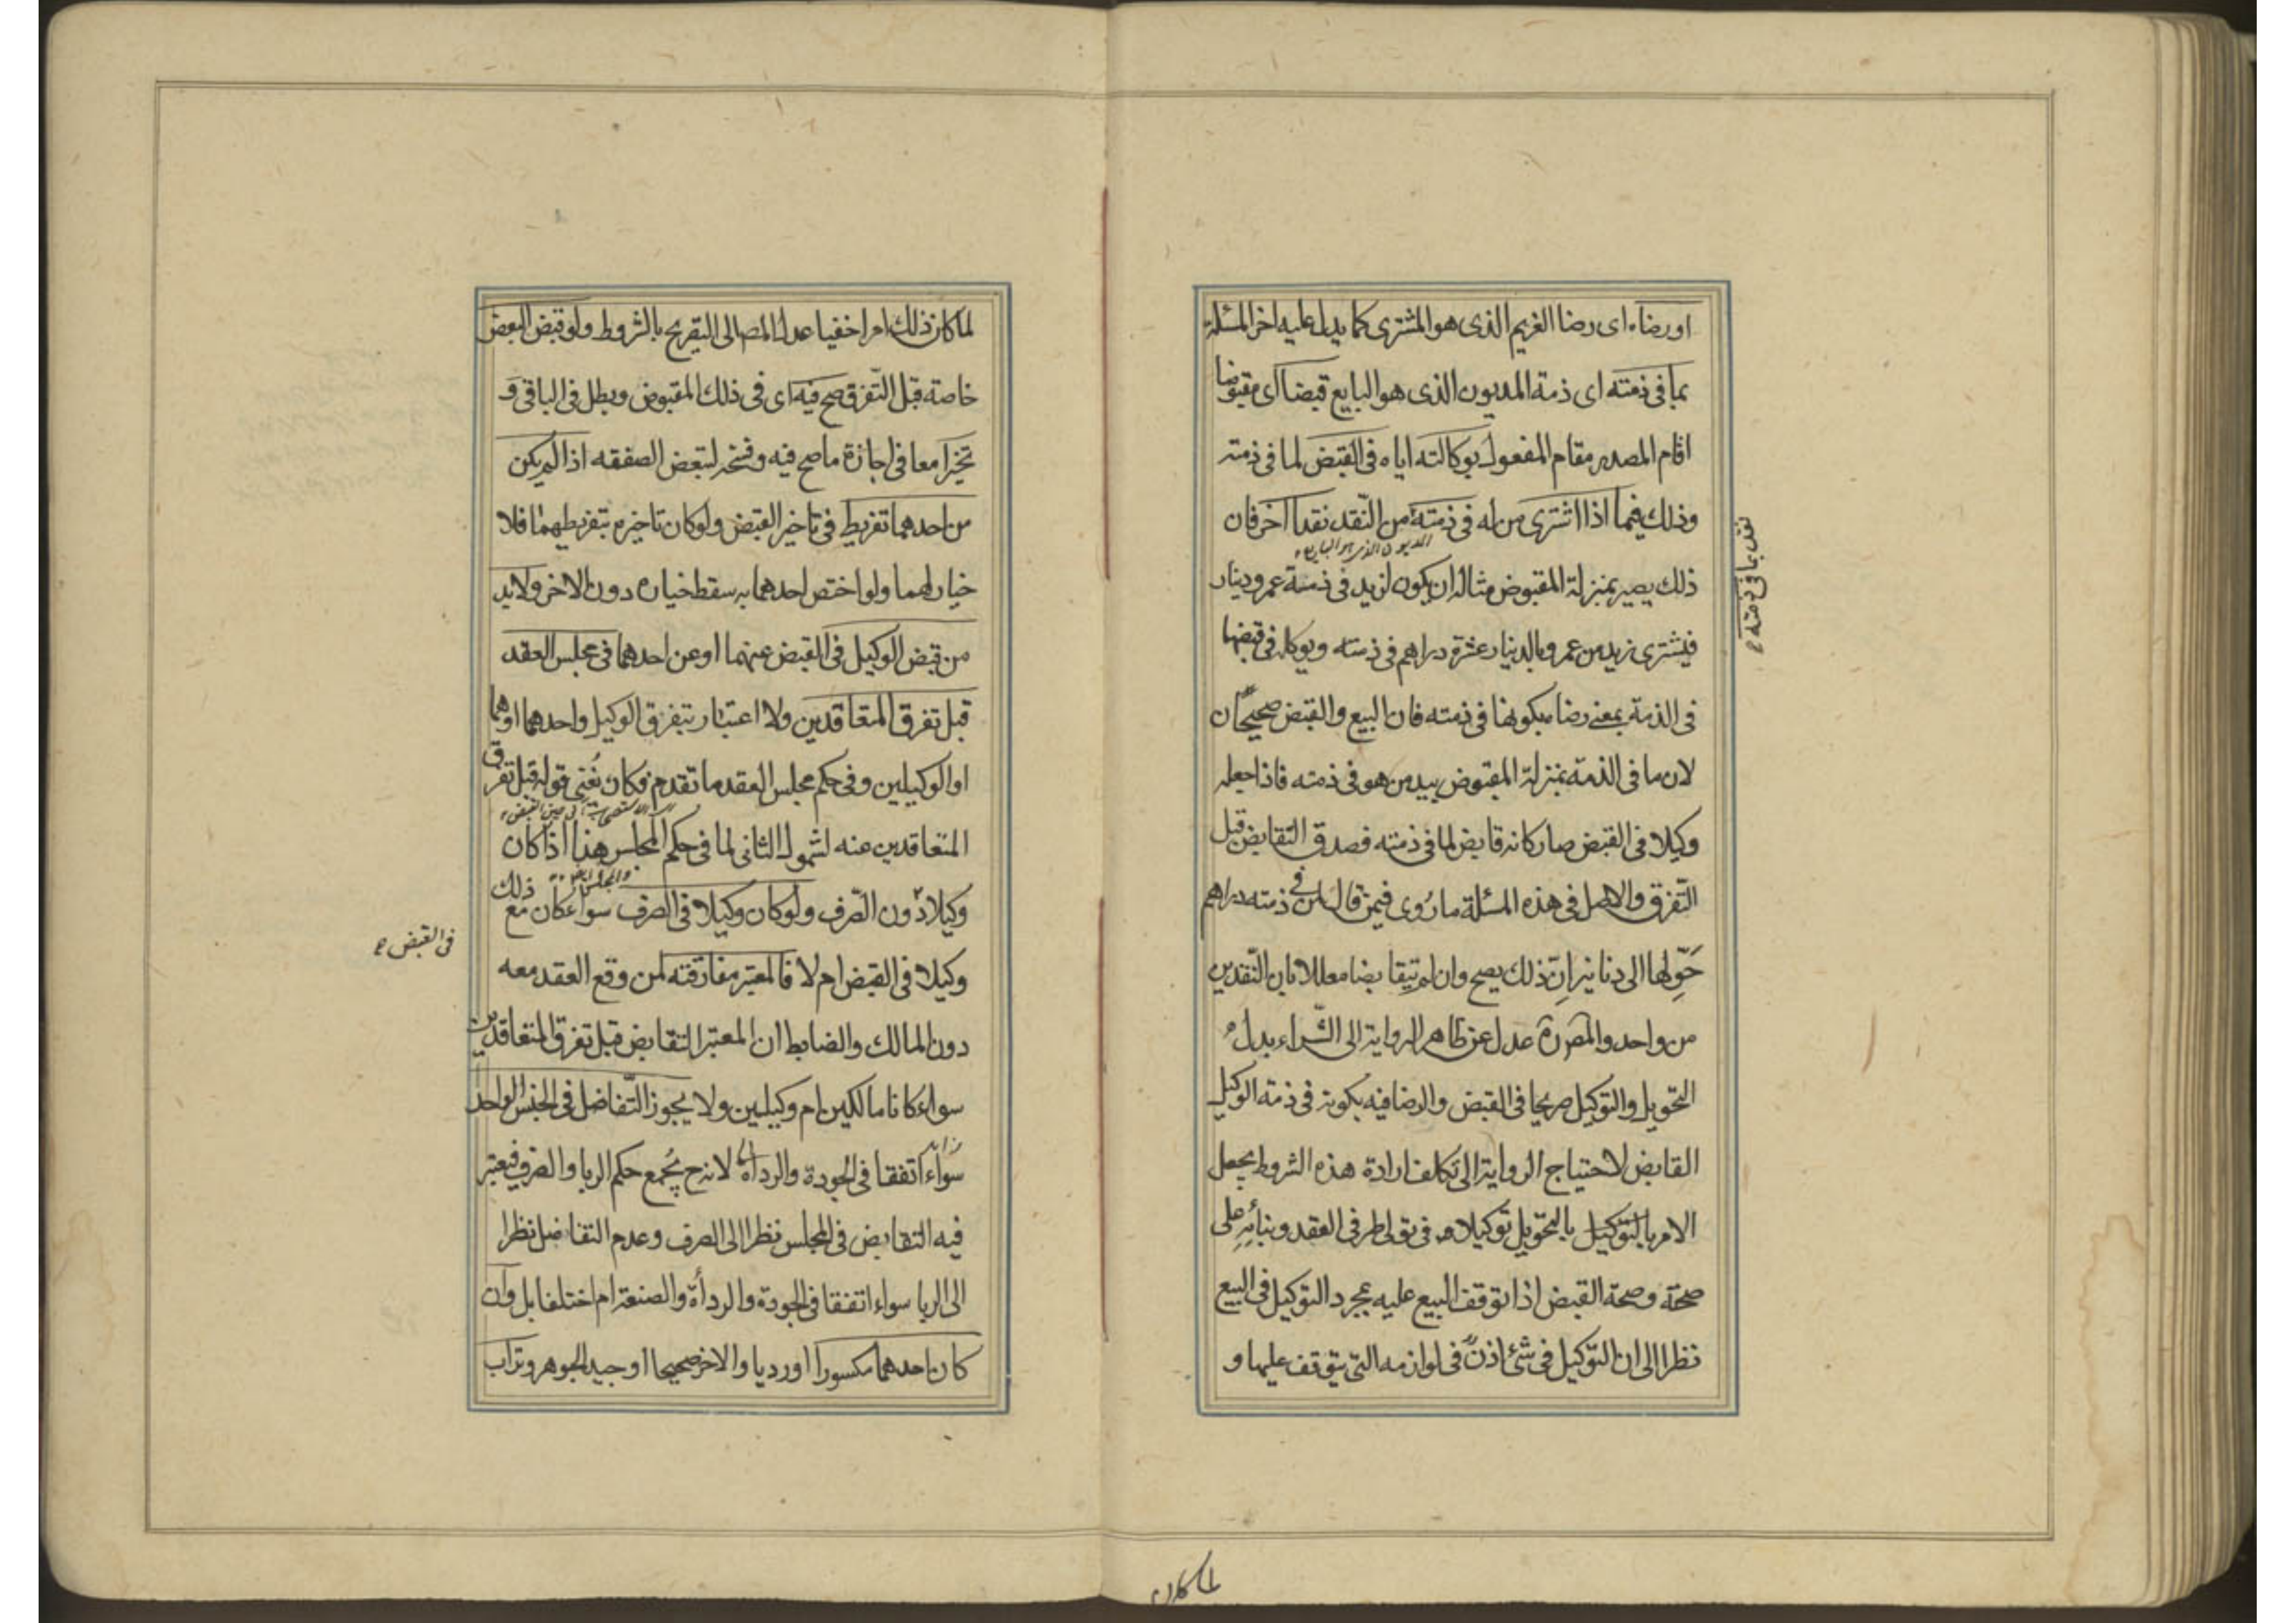 او رضاه اى رضا الغريم الذى هو المشترى كما يدل عليه اخر المسئلة
بما فى ذمته اى ذمة المديون الذى هو البايع قبضا اى مقبوضا
اقام المصدر مقام المفعول بوكالته اياه فى القبض لما فى ذمته
وذلك فيما اذا اشترى من له فى ذمته من النّقد نقدا اخر فان
المديون الذى هو البايع
ذلك يصير بمنزلة المقبوض مثاله ان يكون لزيد فى ذمة عمرو دينار
فيشترى زيد من عمرو بالدينار عشرة دراهم فى ذمته ويوكله فى قبضها
فى الذمة بمعنى رضاه بكونها فى ذمته فان البيع والقبض صحيحان
لان ما فى الذمة بمنزلة المقبوض بيد من هو فى ذمته فاذا جعله
وكيلا فى القبض صار كانه قابض لما فى ذمته فصدق التقابض قبل
التّفرق والاصل فى هذه المسئلة ما روى فيمن قال لمن فى ذمته دراهم
حَوِّلها الى دنانير انّ ذلك يصح وان لم يتقابضا معللا بان النّقدين
من واحد والمصره عدل عن ظاهر الرواية الى الشّراء بدل
التحويل والتوكيل صريحا فى القبض والرضا فيه بكونه فى ذمة الوكيل
القابض لاحتياج الرواية الى تكلف ارادة هذه الشروط بجعل
الامر بالتحويل توكيلا فى تولى طرفى العقد وبنائه على
صحته وصحة القبض اذا توقف البيع عليه بمجرد التوكيل فى البيع
نظرا الى ان التوكيل فى شئ اذنٌ فى لوازمه التى يتوقف عليها و
بما فى ذمته
لما كان
لما كان ذلك امرا خفيا عدل المص الى التصريح بالشروط ولو قبض البعض
خاصة قبل التّفرق صح فيه اى فى ذلك المقبوض وبطل فى الباقى و
تخيرا معا فى اجازة ما صح فيه وفسخه لتبعض الصفقه اذا لم يكن
من احدهما تفريط فى تاخير القبض ولو كان تاخيره بتفريطهما فلا
خيار لهما ولو اختص احدهما به سقط خياره دون الاخر ولابد
من قبض الوكيل فى القبض عنهما او عن احدهما فى مجلس العقد
قبل تفرق المتعاقدين ولا اعتبار بتفرق الوكيل واحدهما او هما
او الوكيلين وفى حكم مجلس العقد ما تقدم فكان يُغنى قوله قبل تفرق
المتعاقدين عنه لشمول الثانى لما فى حكم المجلس هذا اذا كان
وكيلا دون الصّرف ولو كان وكيلا فى الصرف سواء كان مع ذلك
وكيلا فى القبض ام لا فالمعتبر مفارقته لمن وقع العقد معه
فى القبض
دون المالك والضابط ان المعتبر التقابض قبل تفرق المتعاقدين
سواء كانا مالكين ام وكيلين ولا يجوز التّفاضل فى الجنس الواحد
سواء اتفقا فى الجودة والرداة لانه ح يجمع حكم الربا والصرف فيعتبر
فيه التقابض فى المجلس نظرا الى الصرف وعدم التفاضل نظرا
الى الربا سواء اتفقا فى الجودة والرداءة والصنعة ام اختلفا بل وان
كان احدهما مكسورا او رديا والاخر صحيحا او جيد الجوهر وتراب